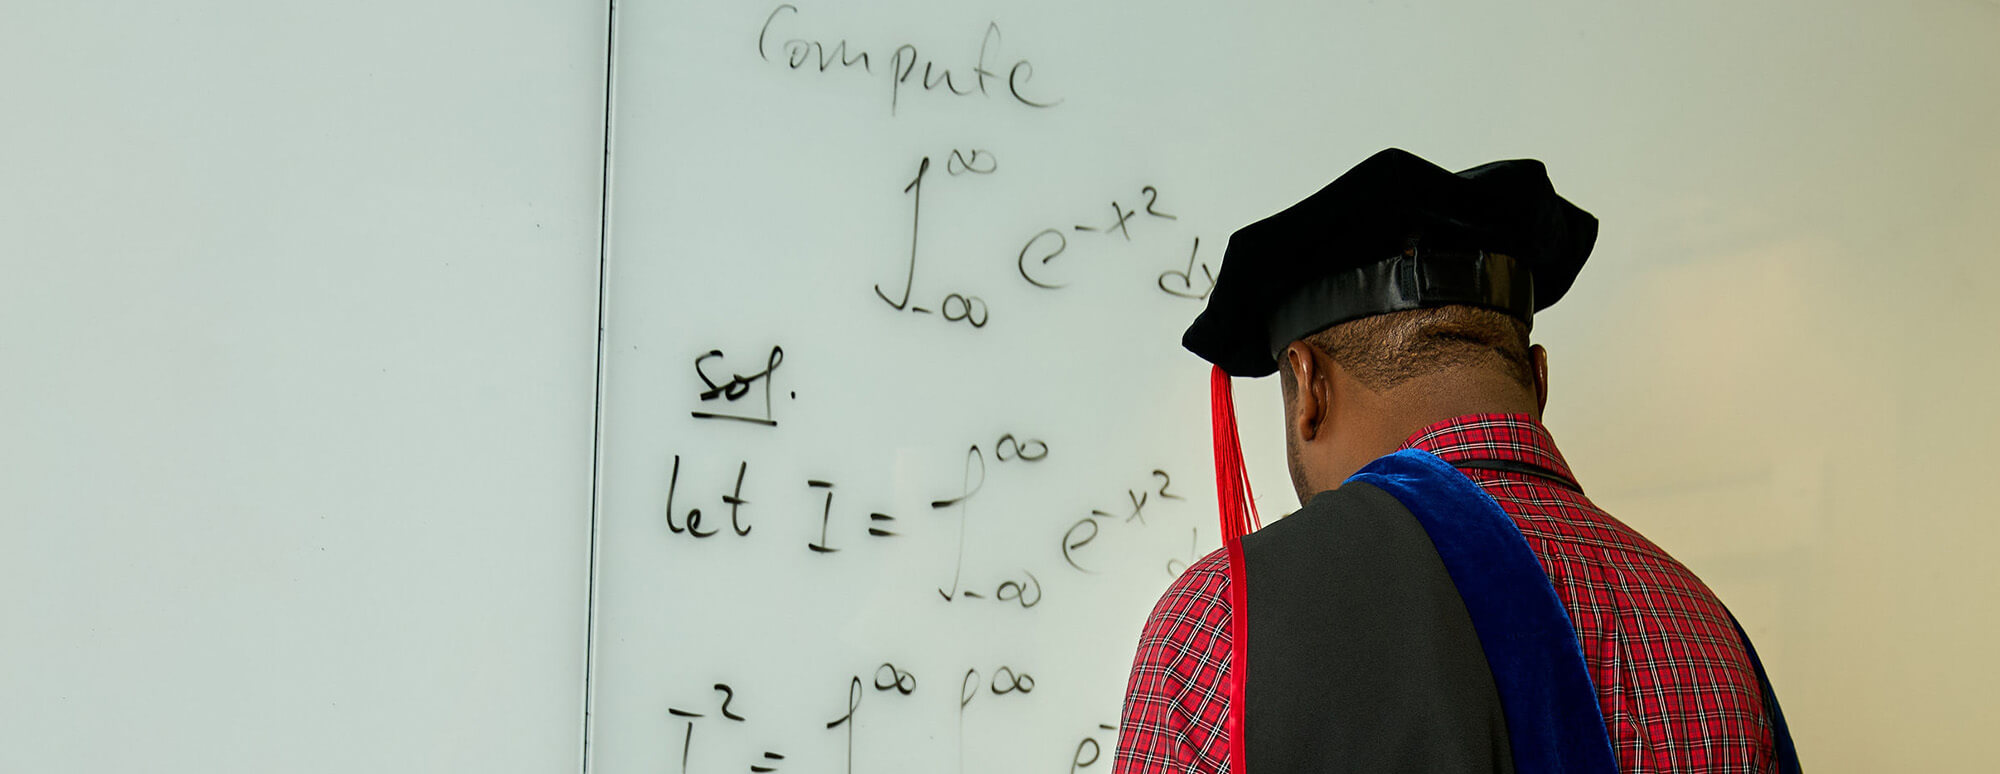 Compute
∫_{-∞}^{∞} e^{-x^2} dx
Sol.
let I = ∫_{-∞}^{∞} e^{-x^2} d
I^2 = ∫^{∞} ∫^{∞} e^-